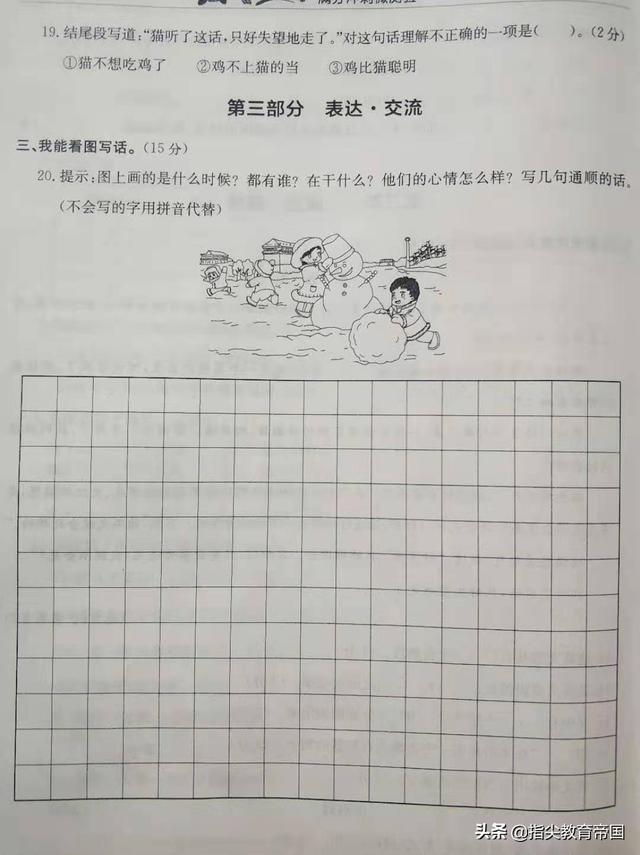 满分冲刺微测验
19. 结尾段写道:“猫听了这话,只好失望地走了。”对这句话理解不正确的一项是( )。(2分)
①猫不想吃鸡了 ②鸡不上猫的当 ③鸡比猫聪明
第三部分 表达·交流
三、我能看图写话。(15分)
20. 提示:图上画的是什么时候?都有谁?在干什么?他们的心情怎么样?写几句通顺的话。
(不会写的字用拼音代替)
头条 @指尖教育帝国